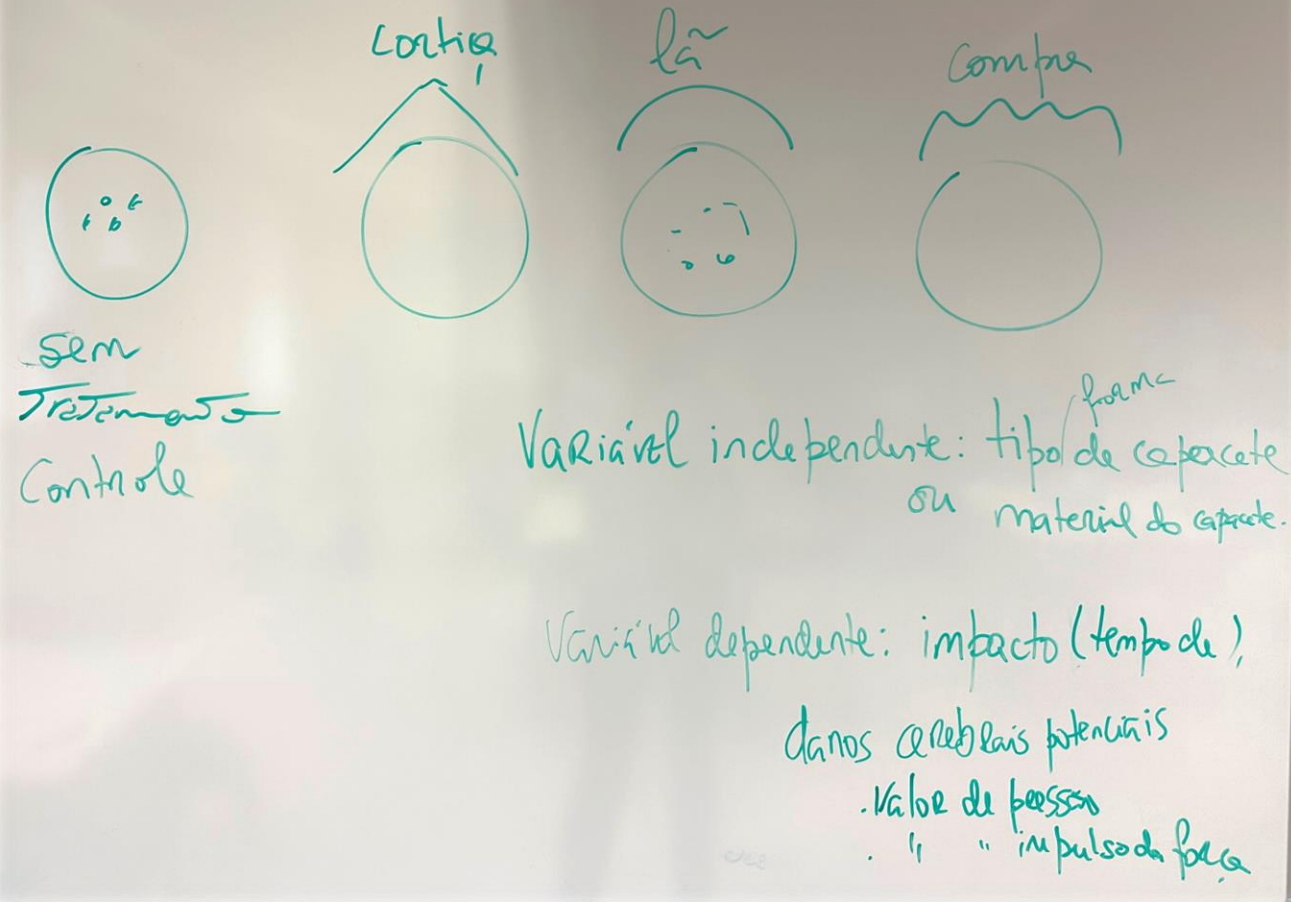 Cortiça
lã
Compra
sem
Tratamento
Controle
forma
Variável independente: tipo/de capacete
ou material do capacete.
Variável dependente: impacto (tempo de),
danos cerebrais potenciais
. Valor de pressão
. " " impulso da força